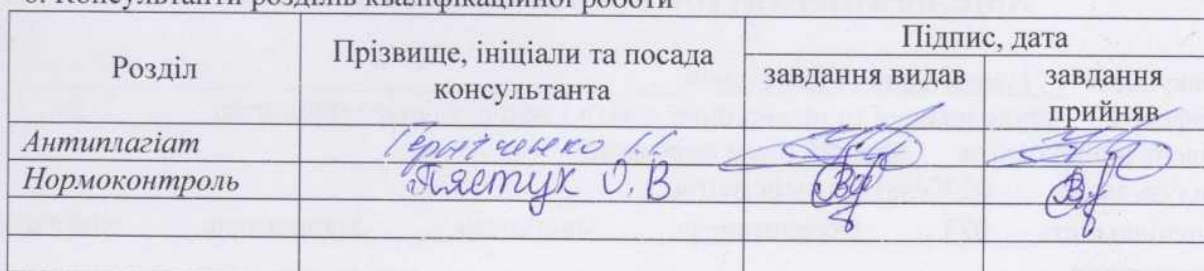 6. Консультанти розділів кваліфікаційної роботи
Розділ
Прізвище, ініціали та посада консультанта
Підпис, дата
завдання видав
завдання прийняв
Антиплагіат
Нормоконтроль О. В